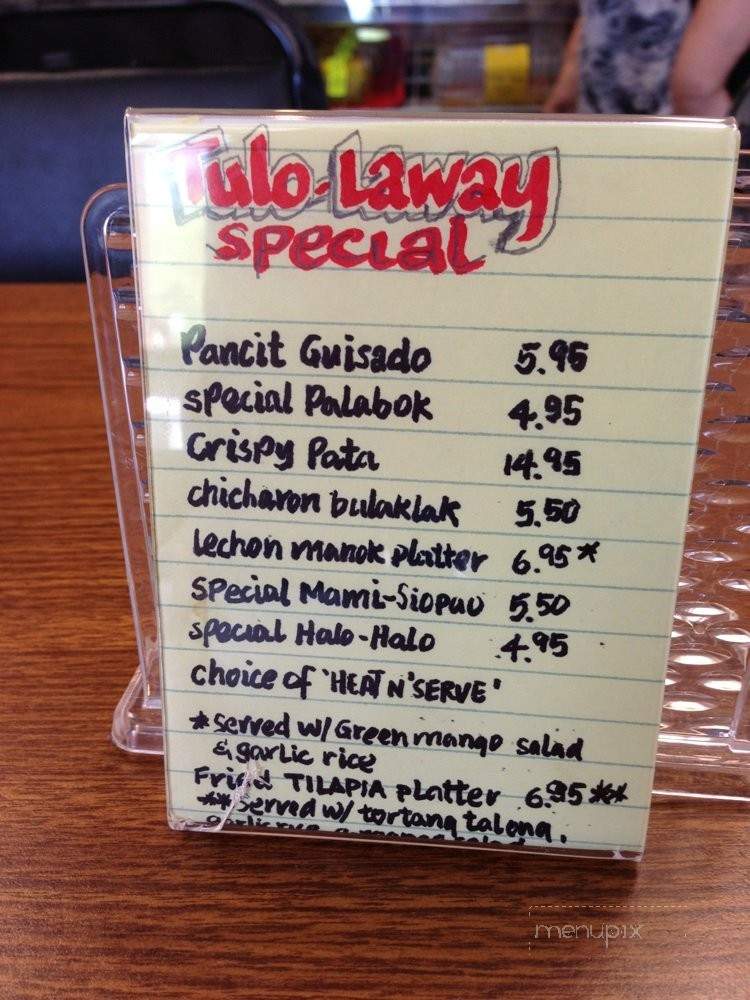 Tulo-Laway
special
Pancit Guisado 5.95
special Palabok 4.95
Crispy Pata 14.95
chicharon bulaklak 5.50
lechon manok platter 6.95*
special Mami-Siopao 5.50
special Halo-Halo 4.95
choice of 'HEAT N' SERVE'
*served w/ Green mango salad
& garlic rice
Fried TILAPIA platter 6.95**
** served w/ tortang talong,
menupix